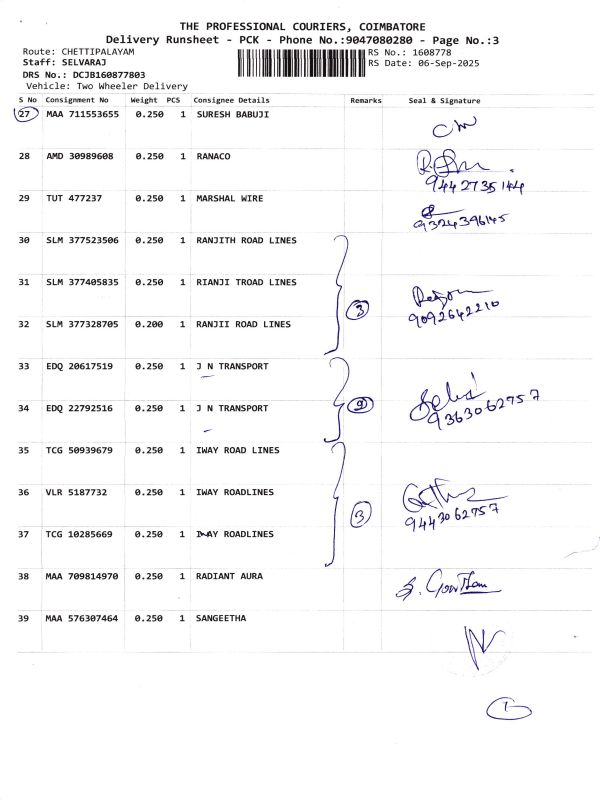 THE PROFESSIONAL COURIERS, COIMBATORE
Delivery Runsheet - PCK - Phone No.:9047080280 - Page No.:3
Route: CHETTIPALAYAM
Staff: SELVARAJ
DRS No.: DCJB160877803
Vehicle: Two Wheeler Delivery
RS No.: 1608778
RS Date: 06-Sep-2025
S No Consignment No Weight PCS Consignee Details Remarks Seal & Signature
27 MAA 711553655 0.250 1 SURESH BABUJI
28 AMD 30989608 0.250 1 RANACO
9442735144
29 TUT 477237 0.250 1 MARSHAL WIRE
9324396145
30 SLM 377523506 0.250 1 RANJITH ROAD LINES
31 SLM 377405835 0.250 1 RIANJI TROAD LINES
3
9092642210
32 SLM 377328705 0.200 1 RANJII ROAD LINES
33 EDQ 20617519 0.250 1 J N TRANSPORT
34 EDQ 22792516 0.250 1 J N TRANSPORT
2
9363062757
35 TCG 50939679 0.250 1 IWAY ROAD LINES
36 VLR 5187732 0.250 1 IWAY ROADLINES
3
9443062757
37 TCG 10285669 0.250 1 IWAY ROADLINES
38 MAA 709814970 0.250 1 RADIANT AURA
S. Gowtham
39 MAA 576307464 0.250 1 SANGEETHA
1